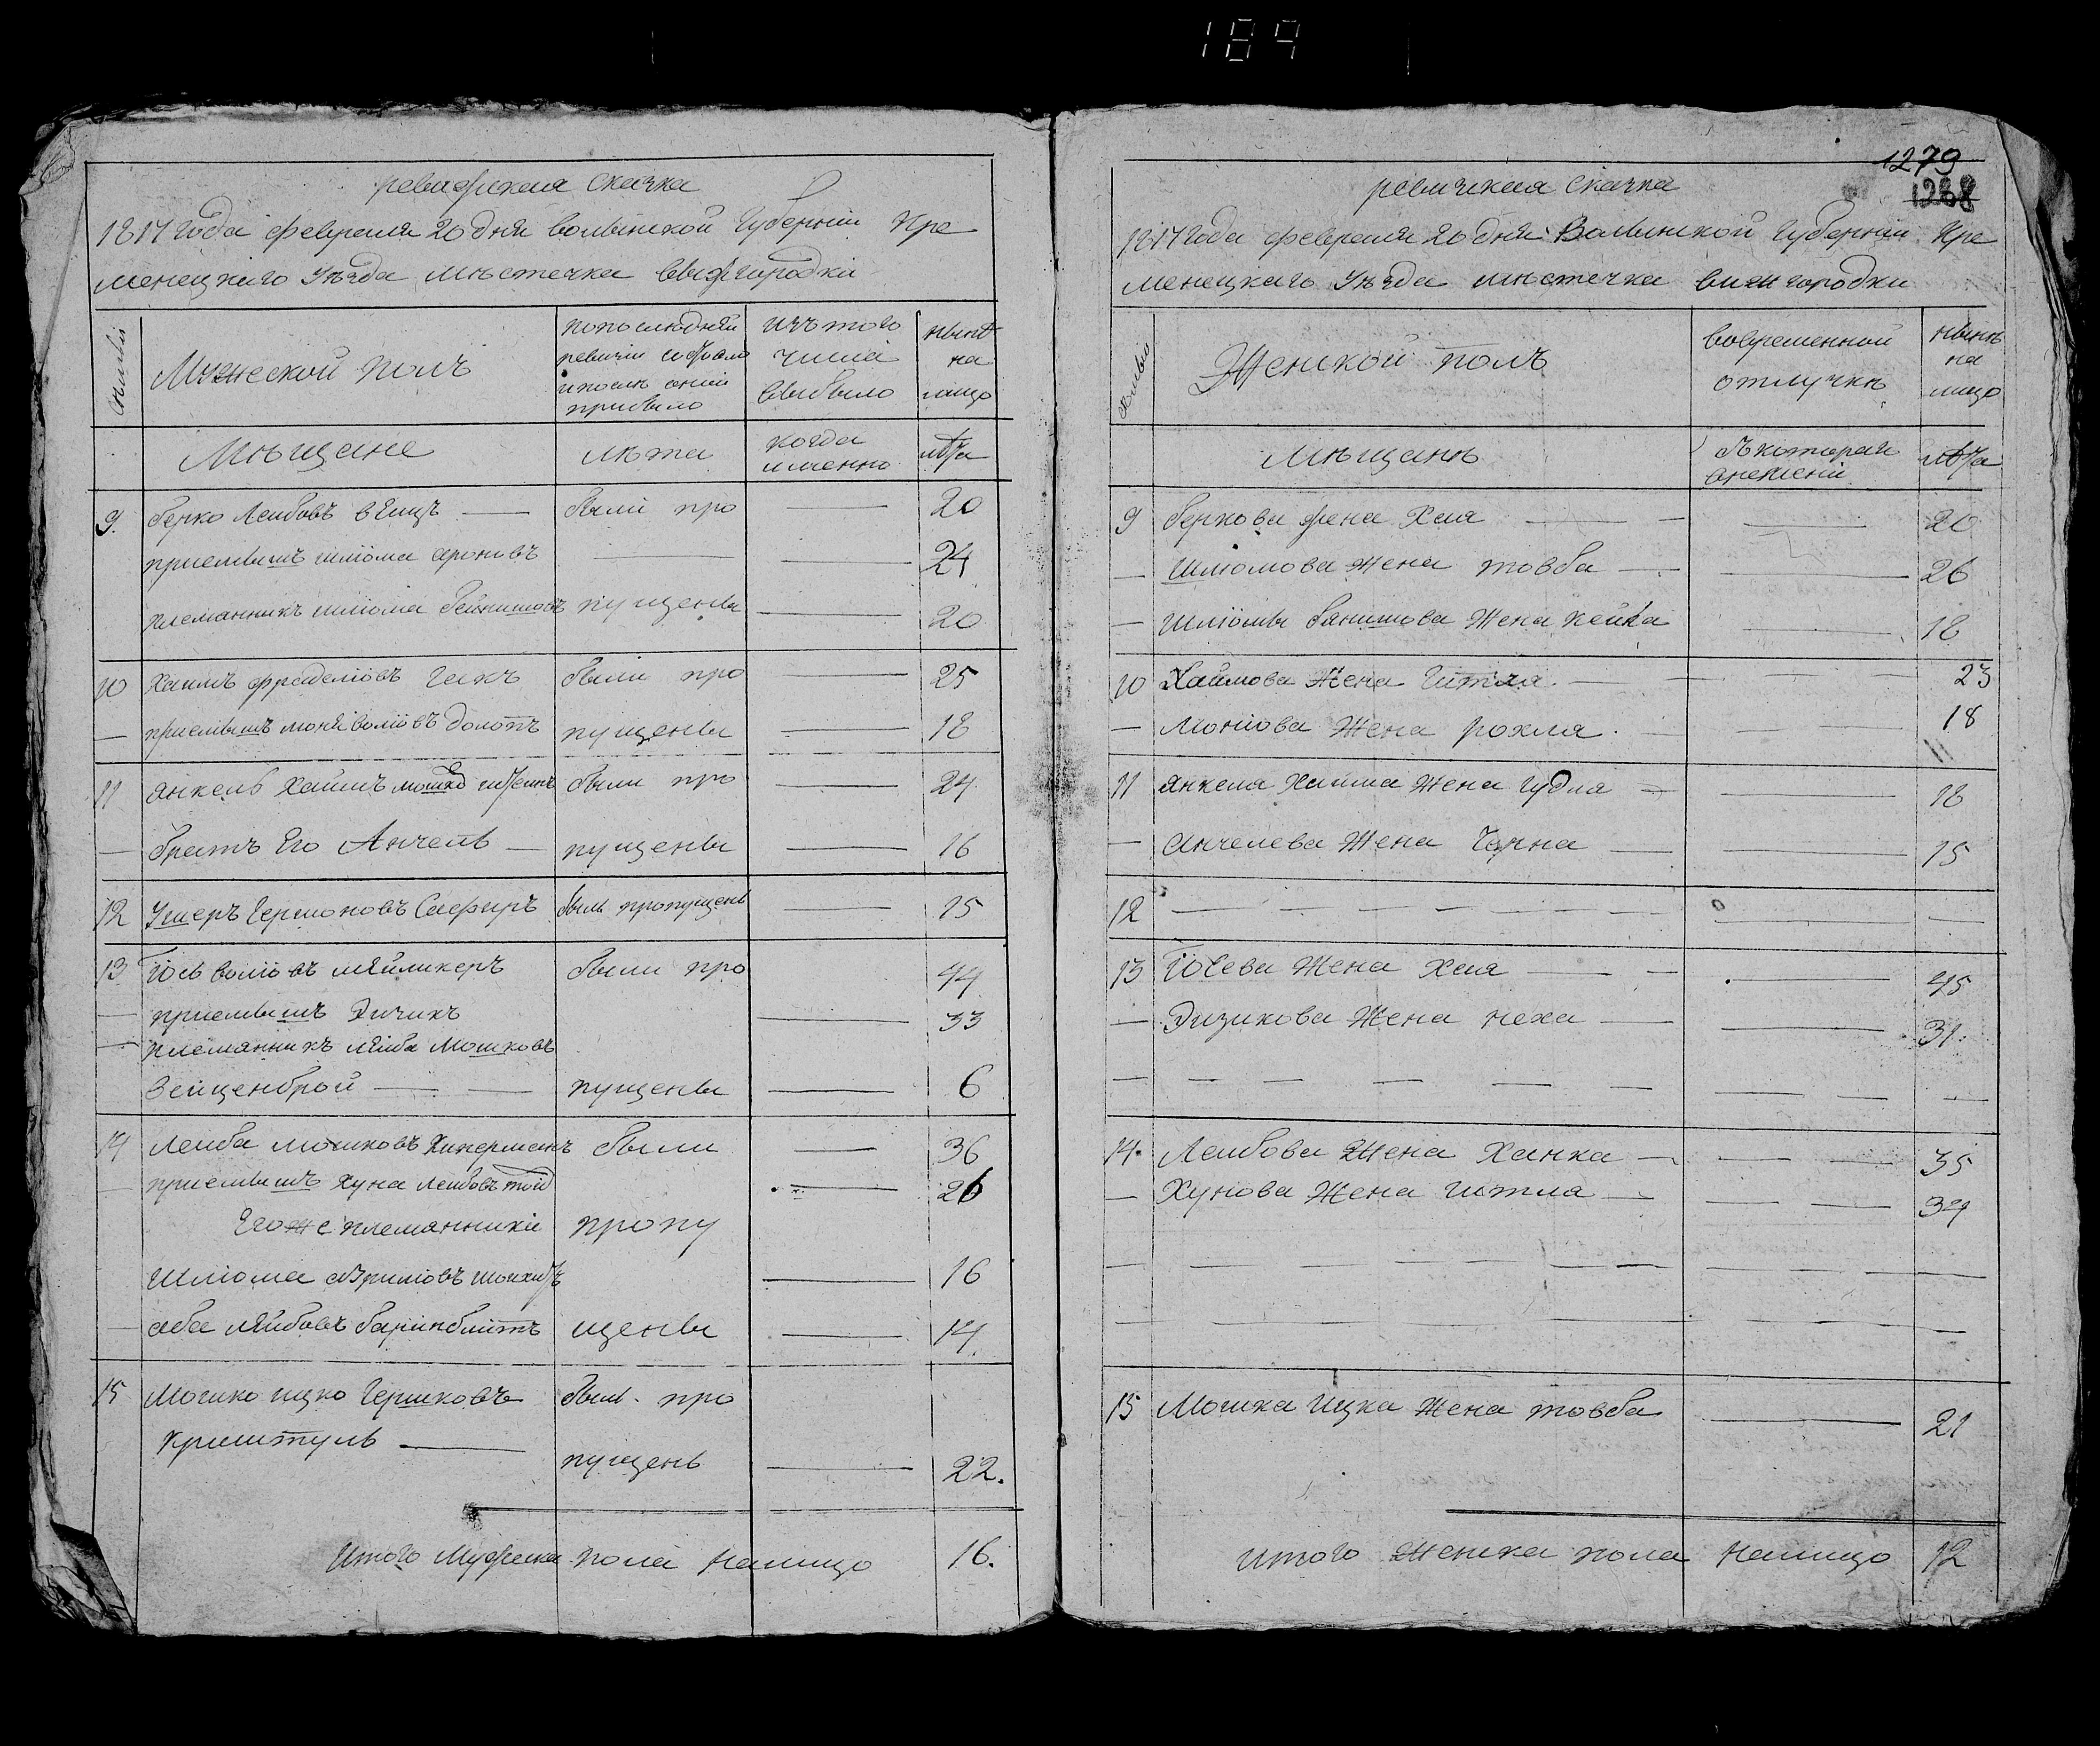 189
ревизская сказка
1817 года февраля 20 дня волынской Губерніи Кре
менецкаго Уѣзда мѣстечка Вижгородки
семьи
Мужеской полъ
попоследней ревизіи состояло ипослѣ оной прибыло
изътого числа выбыло
нынѣ на лицо
Мѣщане
лѣта
когда именно
лѣта
9. берко Лейбовъ — были про — 20
приемышъ шліома ароновъ — — 24
племянникъ шліома бейнишовъ пущены — 20
10 Хаимъ фроделіовъ были про — 25
— приемышъ моня воліовъ пущены — 18
11 Янкель Хаимъ мошко были про — 24
— братъ Его Анчель — пущены — 16
12 Ушеръ Гершоновъ Сафиръ былъ пропущенъ — 15
13 Іось воліовъ были про 44
— приемышъ Эизикъ — 33
— племянникъ лейба Мошковъ
Зейценброй — — пущены — 6
14 Лейба мошковъ были — 36
— приемышъ Хуна лейбовъ — 26
Егоже племянники пропу
Шліома — 16
— аба лейбовъ щены — 14
15 Мошко ицко Гершковъ былъ про
криштуль — пущенъ — 22.
Итого Мужеска пола налицо 16.
1279
1288
ревизкая сказка
1817 года февраля 20 дня Волынской Губерніи Кре
менецкаго Уѣзда мѣстечка вижгородки
семьи
Женской полъ
вовременной отлучкѣ
нынѣ на лицо
Мѣщанѣ
съкотораго времени
лѣта
9 беркова жена Хая — — — 20
— Шліомова жена товба — — 26
— Шліомы бянишова жена хейка — 18
10 Хаимова Жена Гитля — — — 23
— Моніова Жена рохля — — 18
11 Янкеля Хаима Жена Гудля — — 18
— Анчелева Жена Чарна — — 15
12 — — — — — — — —
13 Іосева Жена Хая — — — 45
— Эизикова Жена неха — — 31.
— — — — — — — — —
14. Лейбова Жена Ханка — — — 35
— Хунова Жена Гитля — — — 34
— — — — — — — — —
— — — — — — — — —
15 Мошка ицка Жена товба — 21
итого Женска пола налицо 12